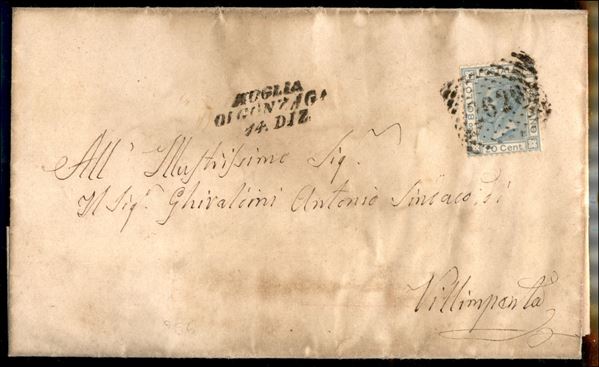 MUGLIA
DI GONZAGA
14. DIZ
BOLLO
20 Cent.
All' Illustrissimo Sig.r
Il Sig.r Ghiraldini Antonio Sindaco di
Villimpenta